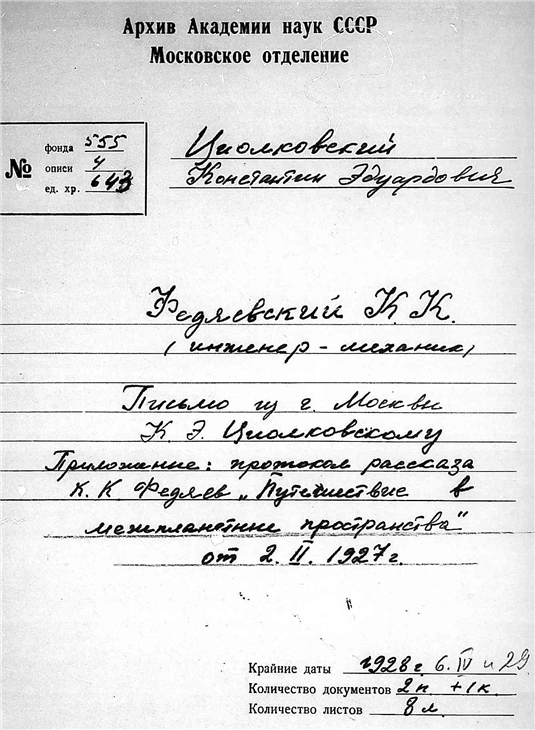 Архив Академии наук СССР
Московское отделение
№
фонда 555
описи 4
ед. хр. 643
Циолковский
Константин Эдуардович
Федяевский К. К.
(инженер-механик)
Письмо из г. Москвы
К. Э. Циолковскому
Приложение: протокол рассказа
К. К. Федяев „Путешествие в
межпланетные пространства“
от 2. II. 1927 г.
Крайние даты 1928 г. 6. IV и 29
Количество документов 2 п. + 1 к.
Количество листов 8 л.